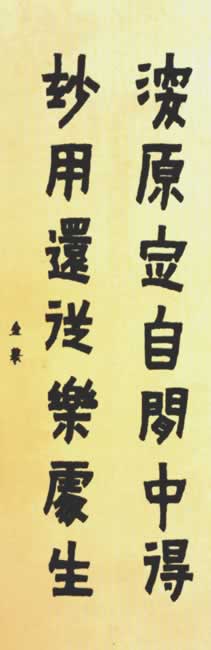 深原定自閒中得
妙用還從樂處生